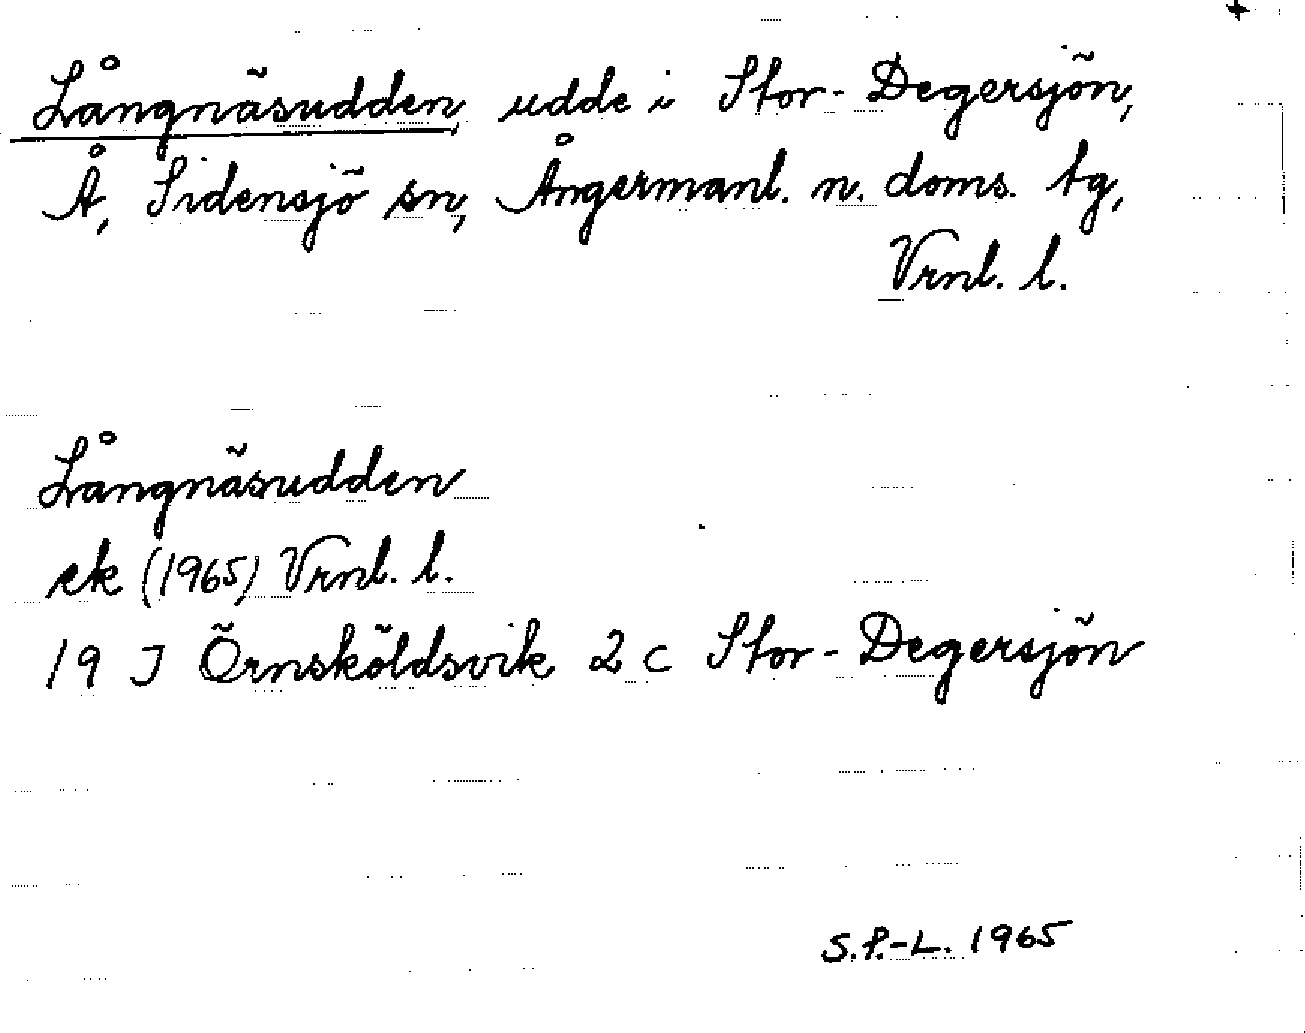 Långnäsudden, udde i Stor-Degersjön,
Å, Sidensjö sn, Ångermanl. n. doms. tg,
Vrnl. l.
Långnäsudden
ek (1965) Vrnl. l.
19 J Örnsköldsvik 2 c Stor-Degersjön
S.P.-L. 1965